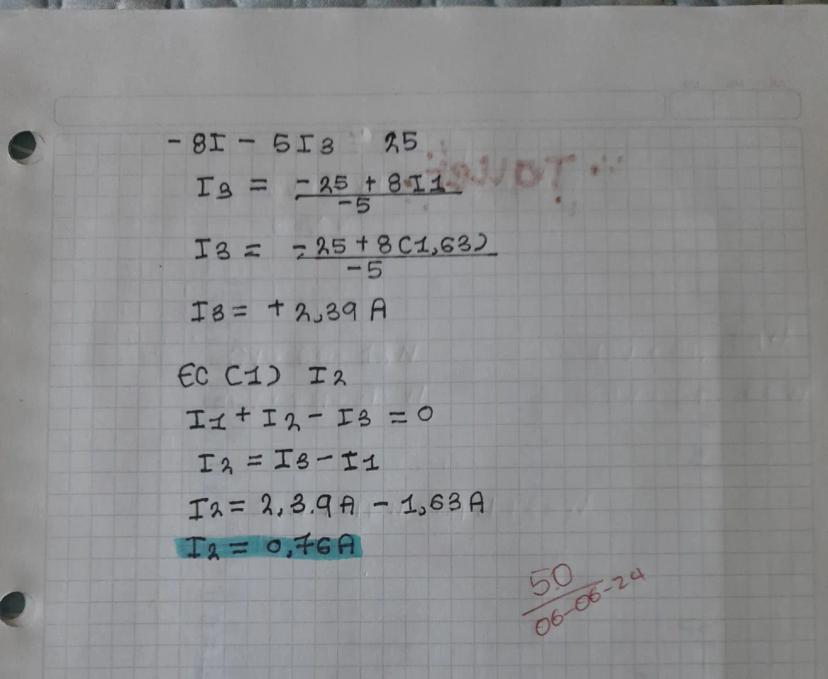 - 8I - 5I3 25
I3 = -25 + 8I1
-5
I3 = -25 + 8(1,63)
-5
I3 = + 2,39 A
EC (1) I2
I1 + I2 - I3 = 0
I2 = I3 - I1
I2 = 2,3.9A - 1,63A
I2 = 0,76A
50
06-06-24